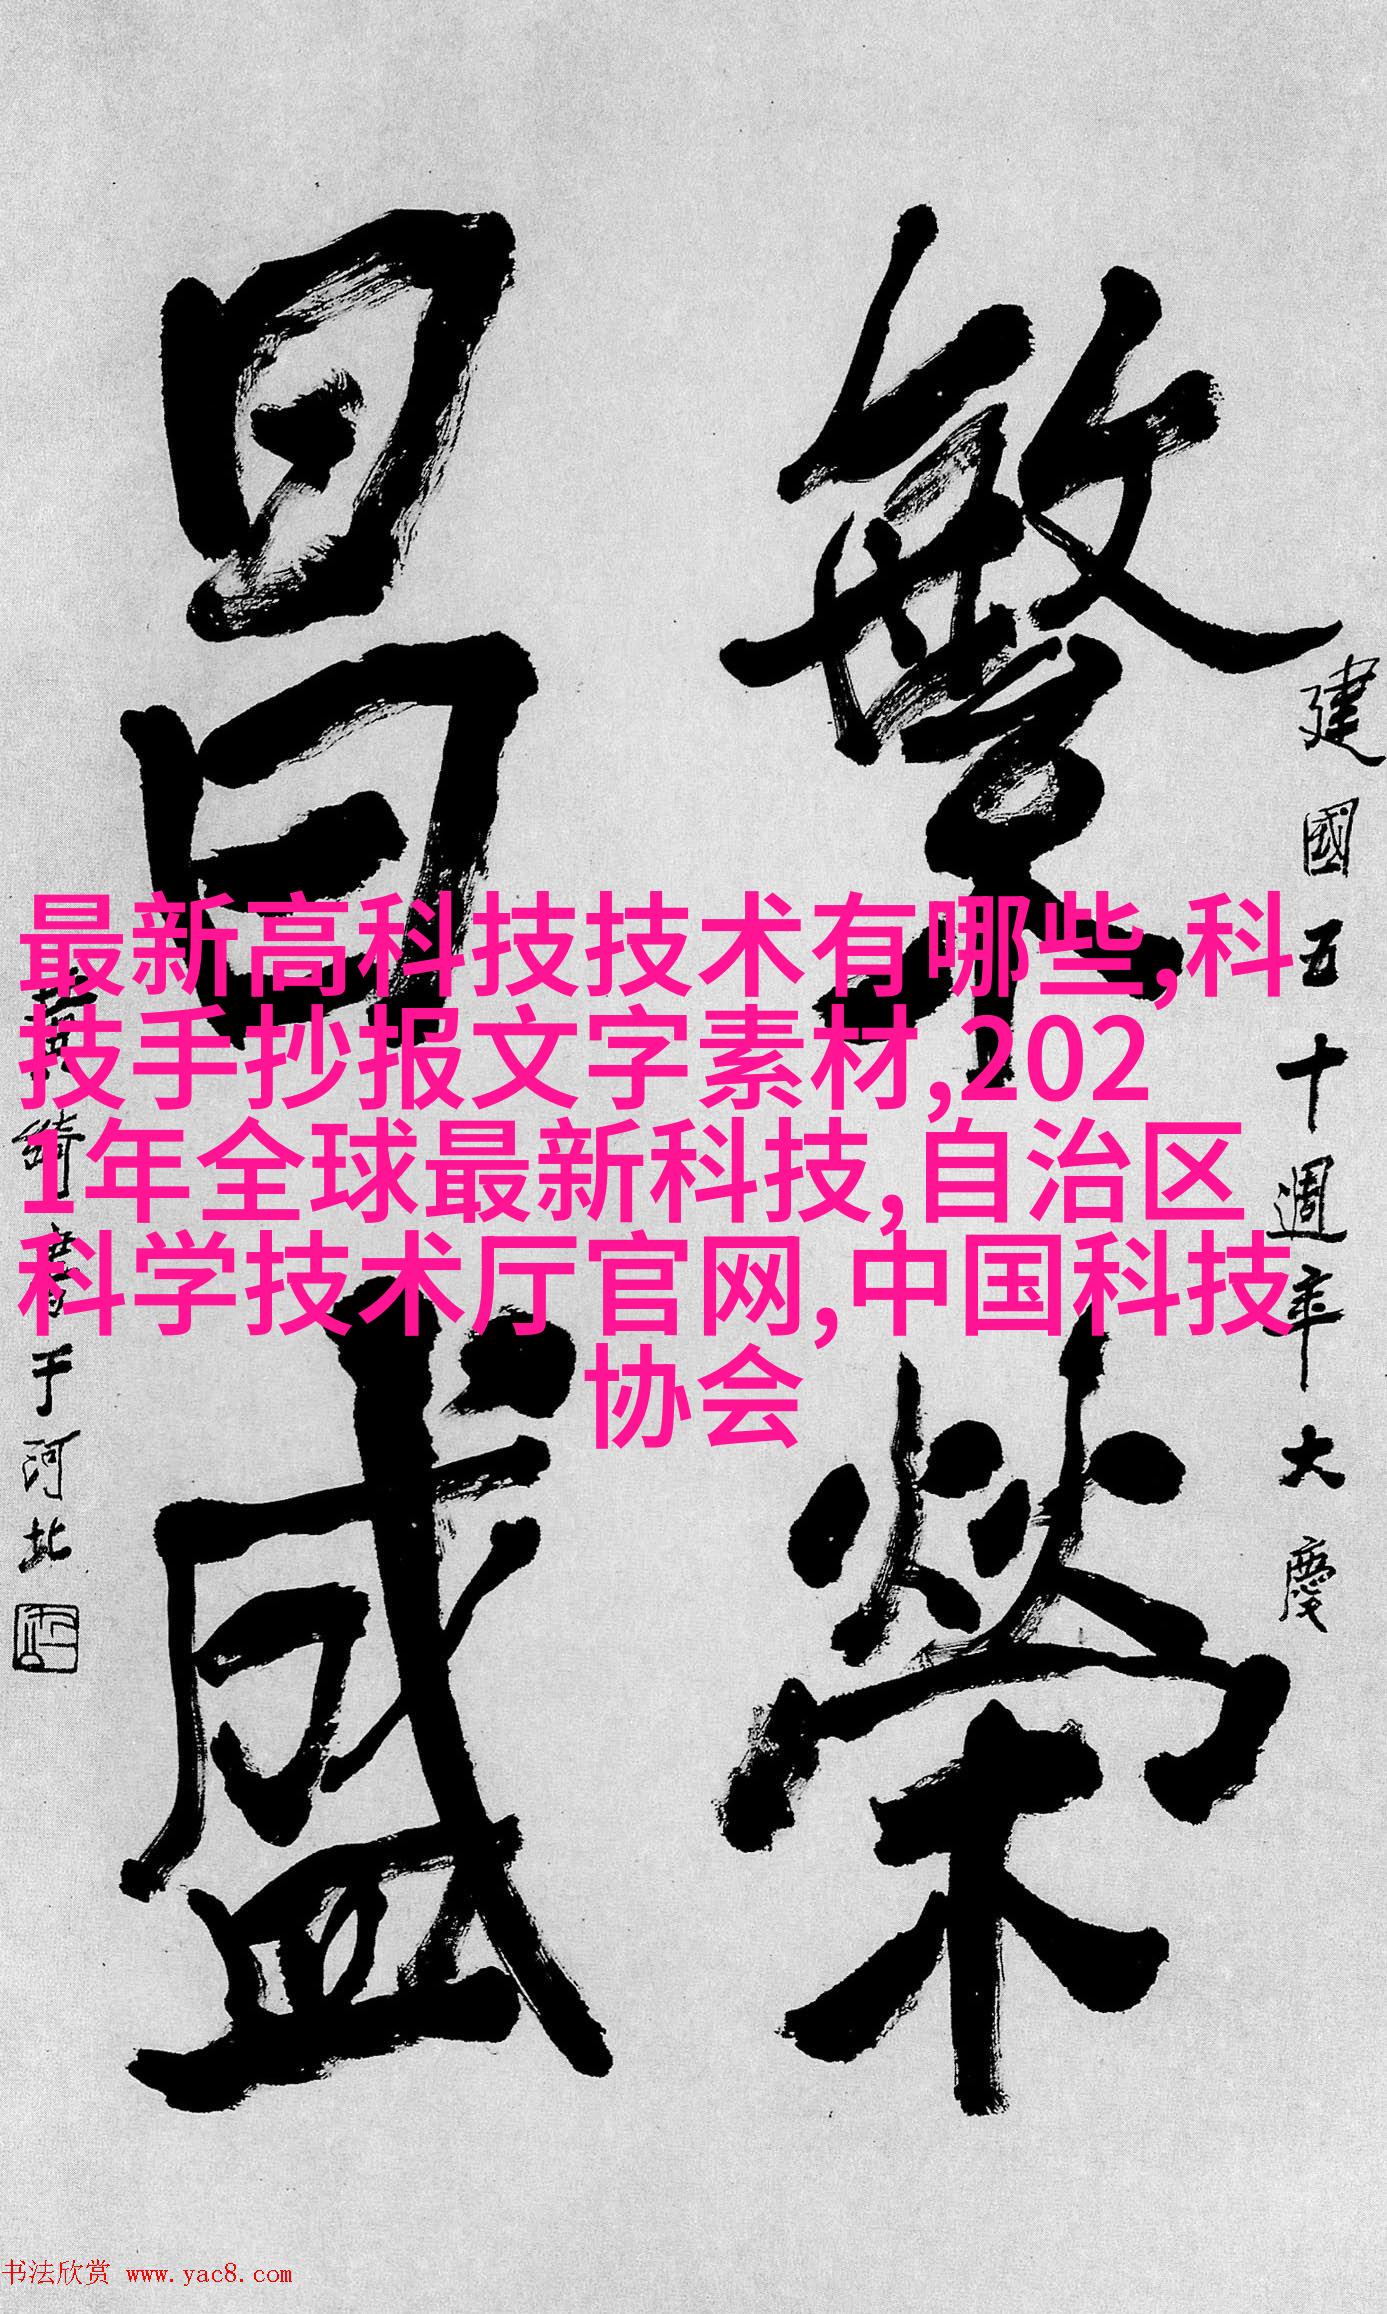 繁榮
昌盛
建國五十週年大慶
于河北
最新高科技技术有哪些,科
技手抄报文字素材,202
1年全球最新科技,自治区
科学技术厅官网,中国科技
协会
书法欣赏 www.yac8.com